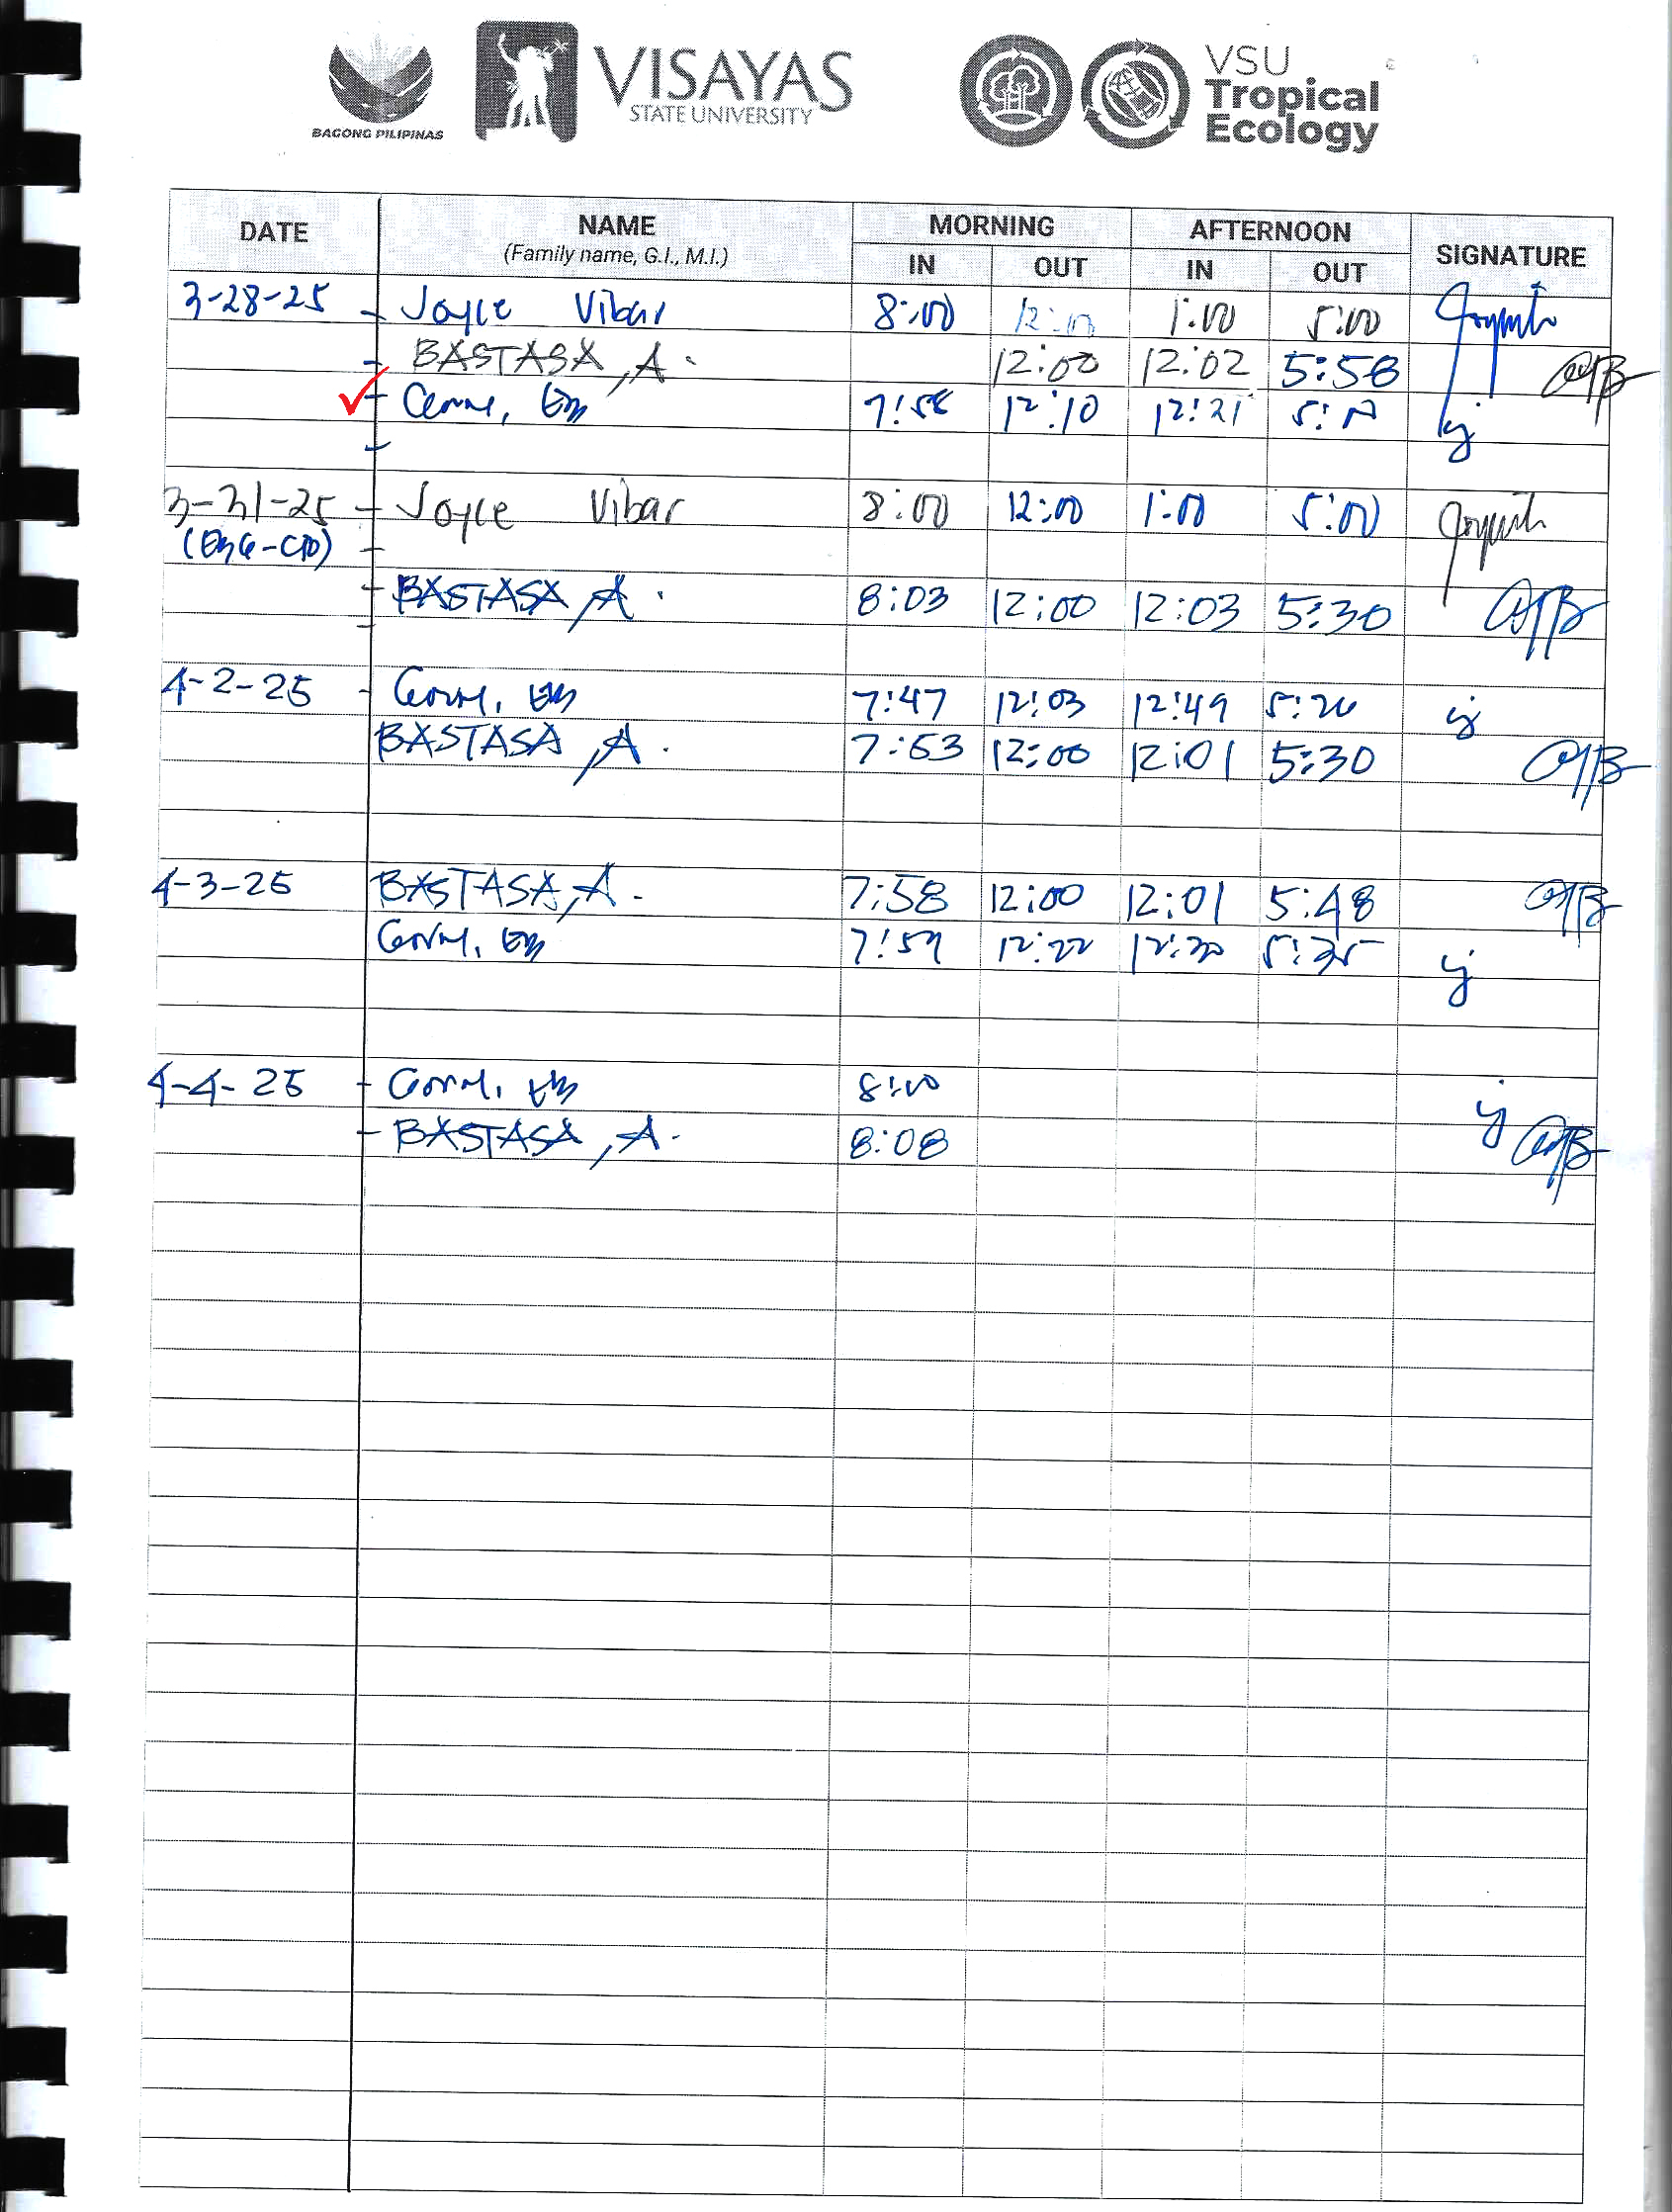 BAGONG PILIPINAS
VISAYAS
STATE UNIVERSITY
VSU
Tropical
Ecology
DATE NAME (Family name, G.I., M.I.) MORNING AFTERNOON SIGNATURE
IN OUT IN OUT
3-28-25 - Joyce Vibar 8:00 12:00 1:00 5:00
- BASTASA, A. 12:00 12:02 5:58
7:58 12:10 12:21
3-31-25 - Joyce Vibar 8:00 12:00 1:00 5:00
- BASTASA, A. 8:03 12:00 12:03 5:30
4-2-25 - 7:47 12:03 12:49 5:26
BASTASA, A. 7:53 12:00 12:01 5:30
4-3-25 BASTASA, A. 7:58 12:00 12:01 5:48
7:59 12:22 12:30 5:35
4-4-25 - 8:00
- BASTASA, A. 8:08